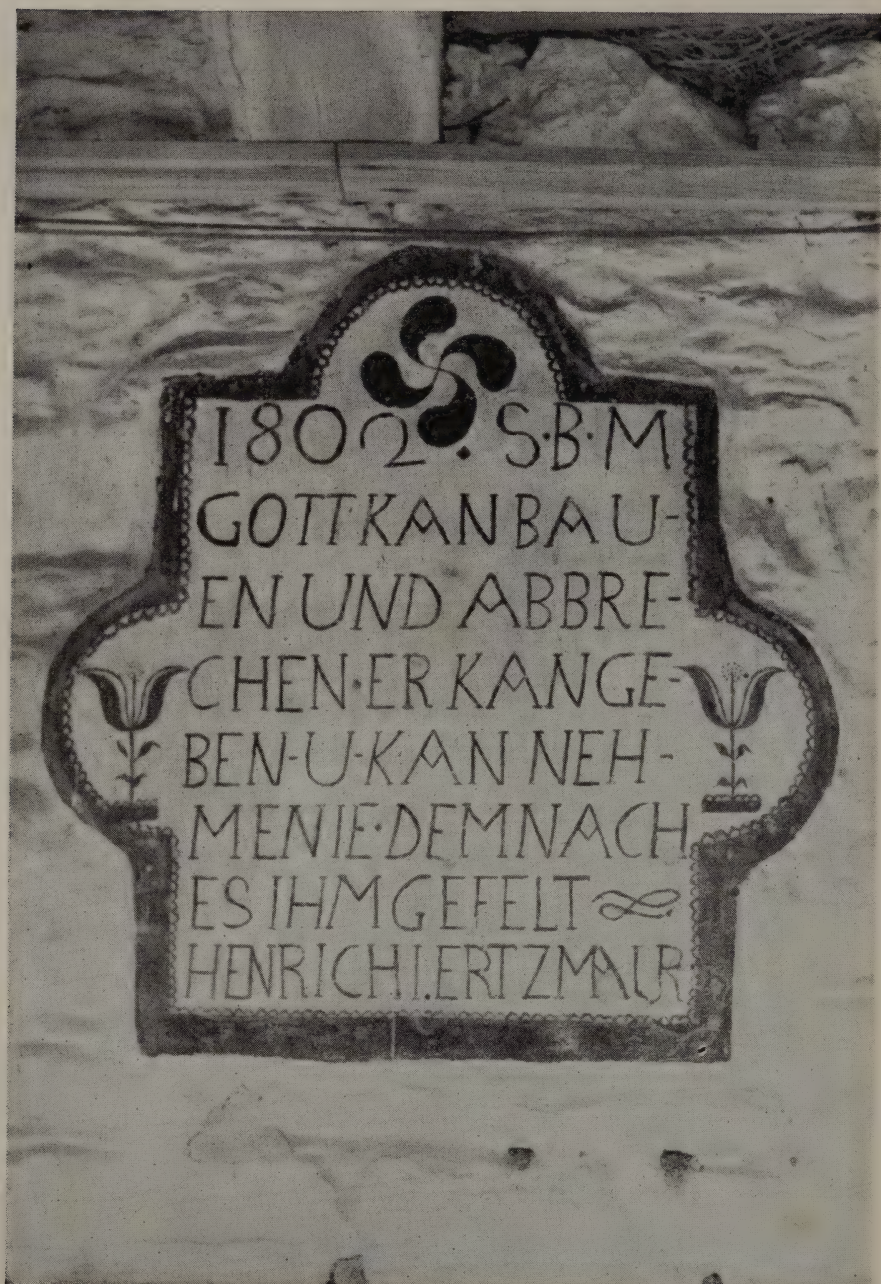 1802. S·B·M
GOTT KAN BAU-
EN UND ABBRE-
CHEN·ER KAN GE-
BEN·U·KAN NEH-
MEN IE·DEM NACH
ES IHM GEFELT
HENRICH I. ERTZ MAUR